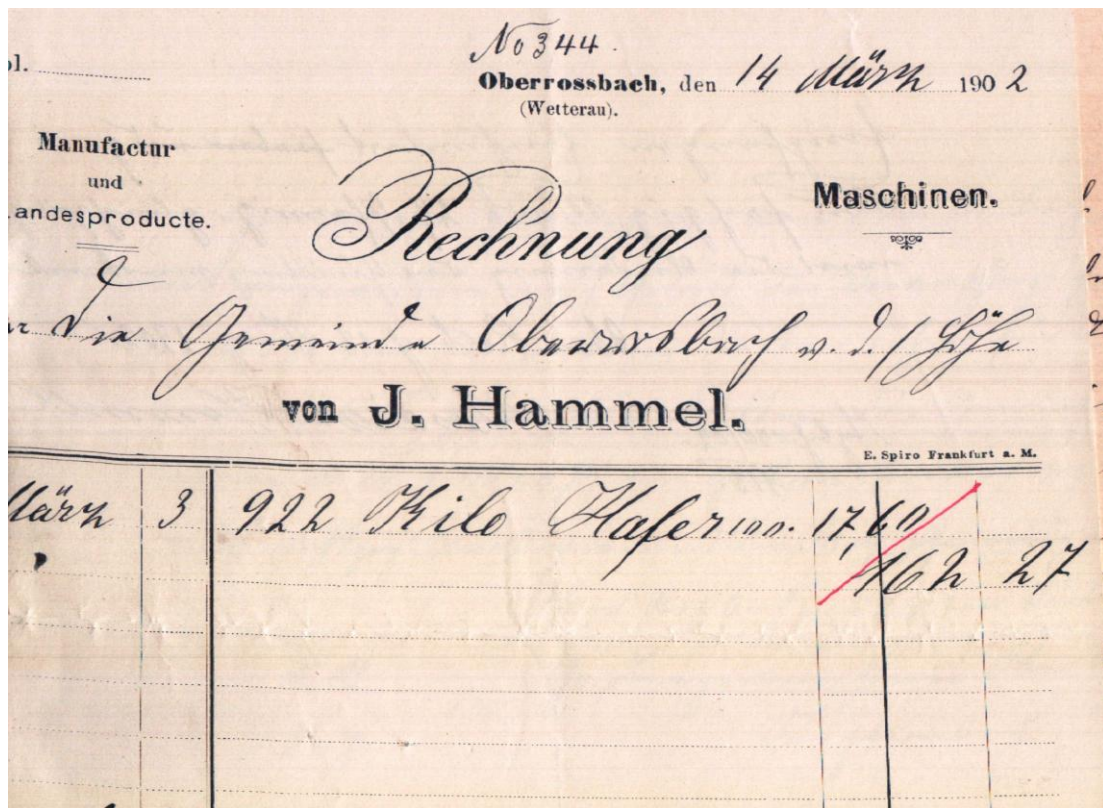 No 344.
ol.
Oberrossbach, den 14 März 1902
(Wetterau).
Manufactur
und
Landesproducte.
Maschinen.
Rechnung
die Gemeinde Oberrosbach v. d. / Höhe
von J. Hammel.
E. Spiro Frankfurt a. M.
März 3 922 Kilo Hafer 100. 17,60
162 27